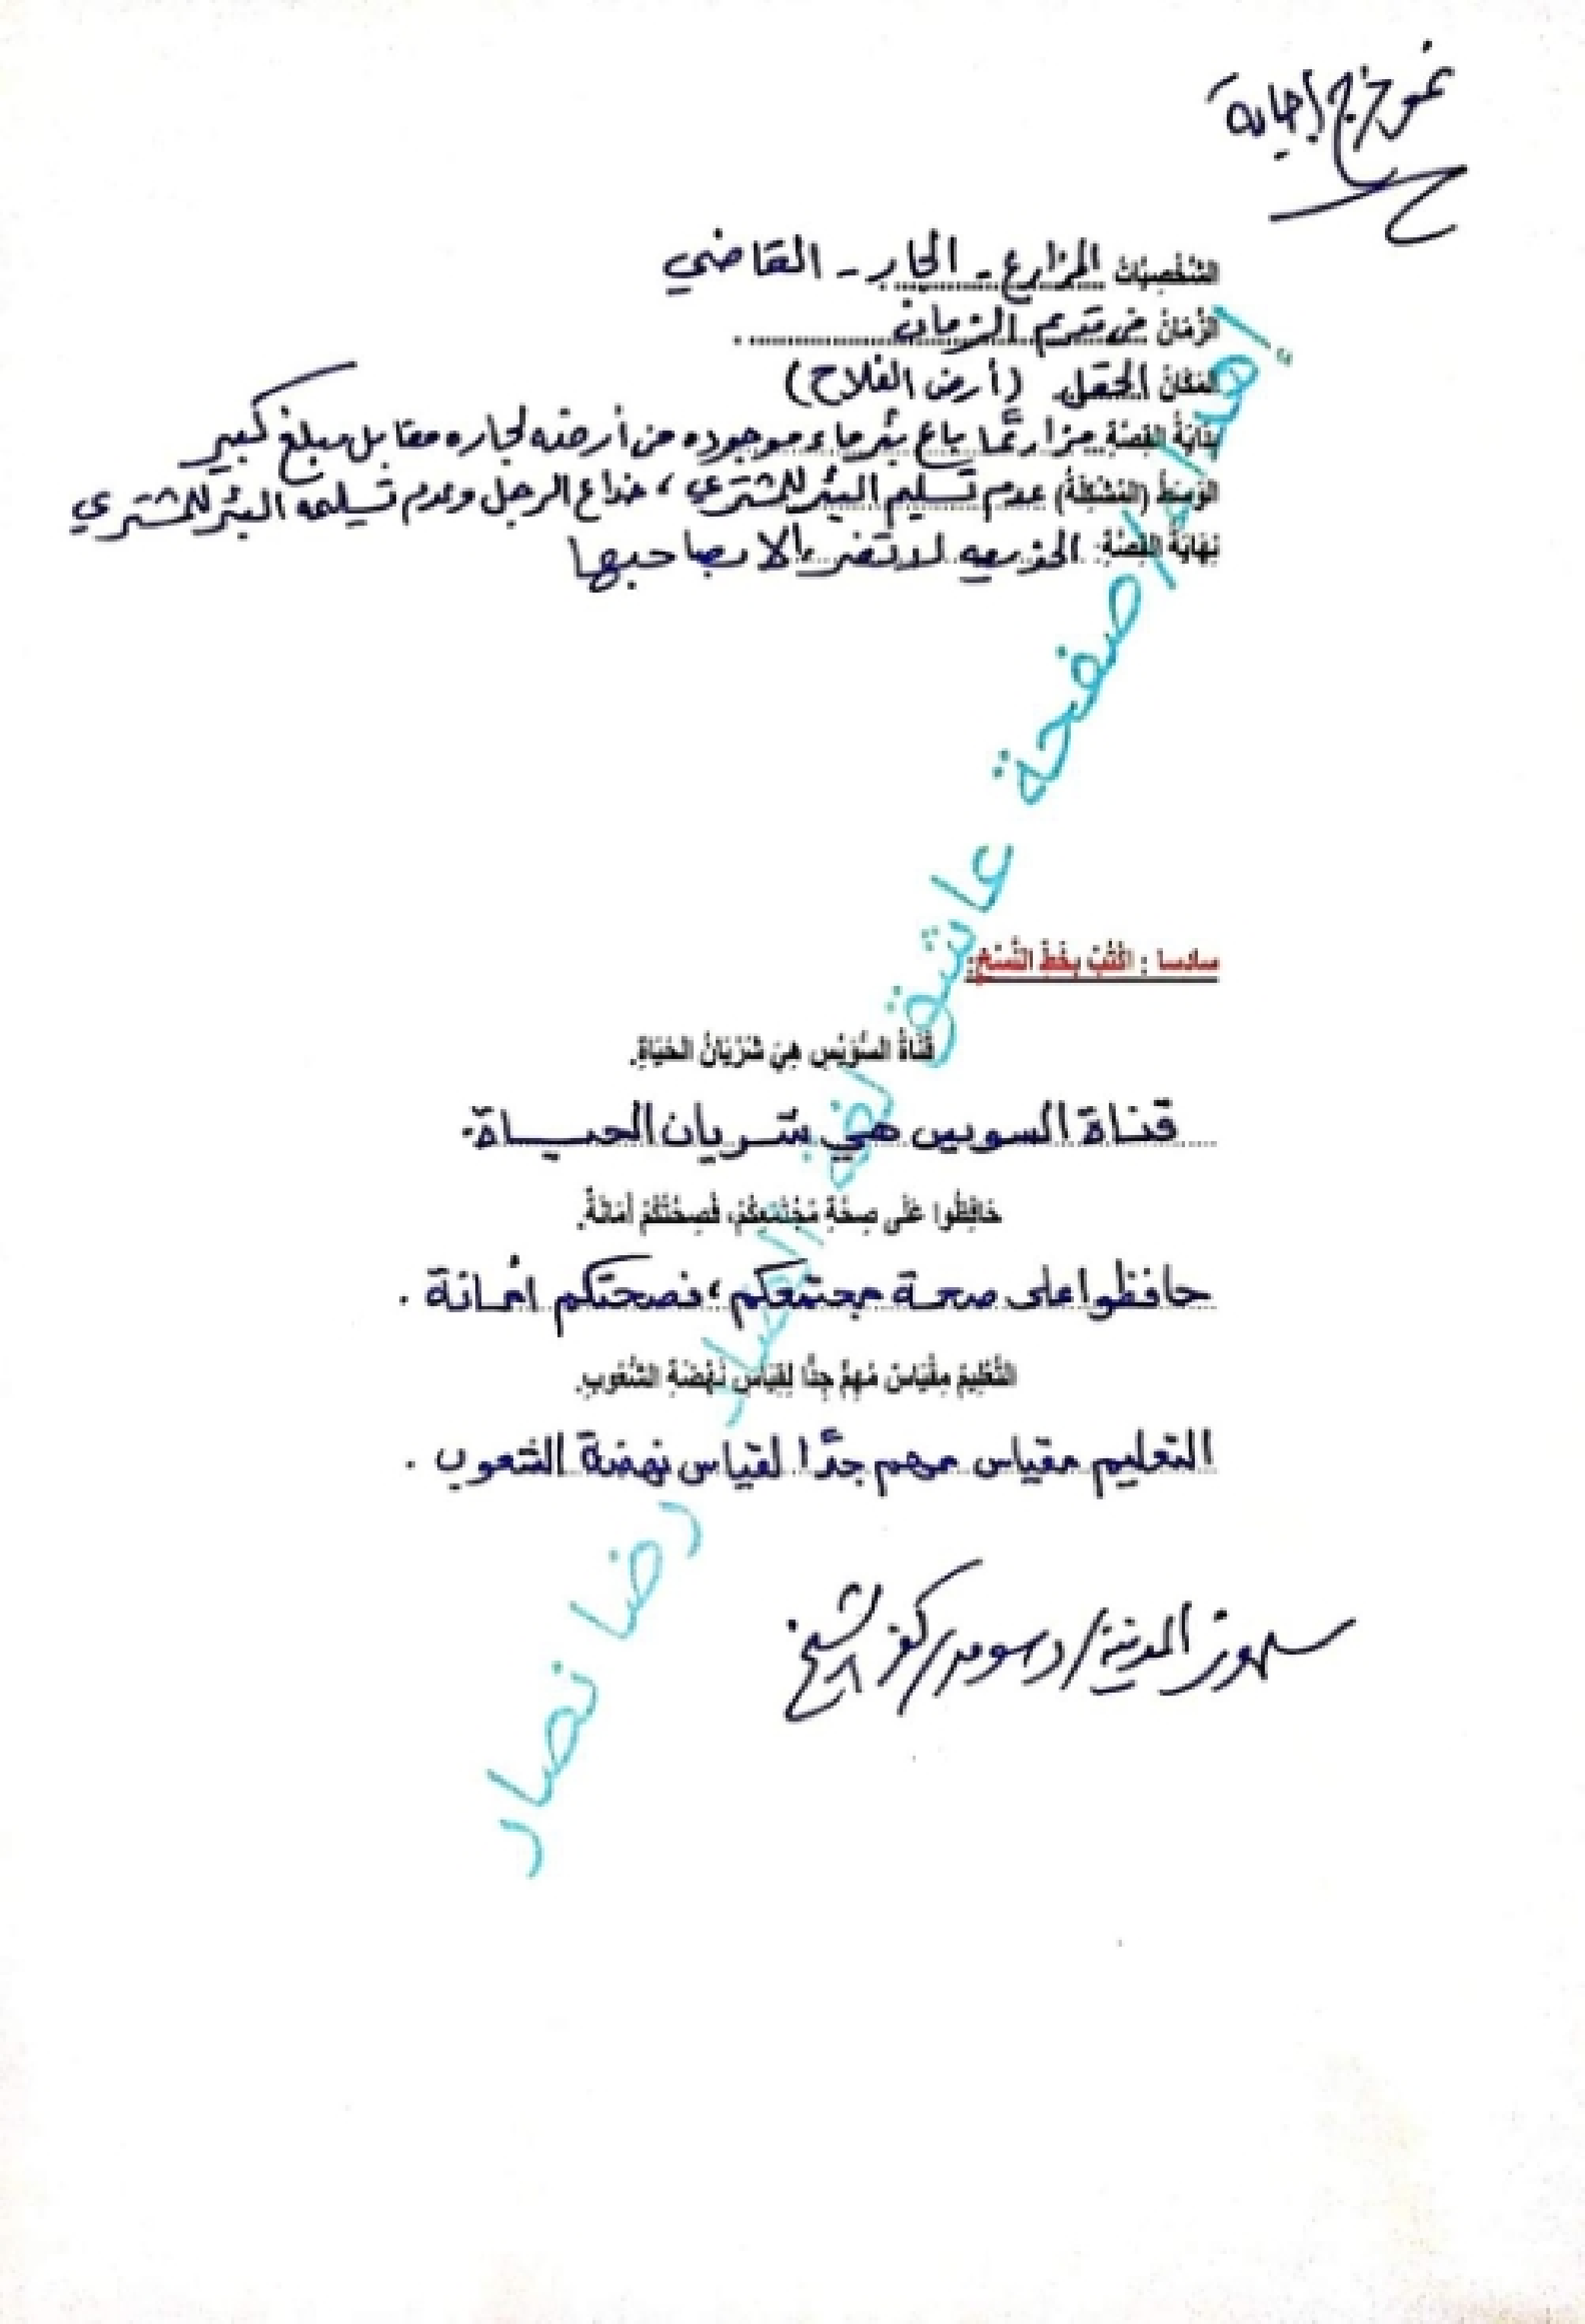 نموذج إجابة
الشَّخْصِيَّاتُ المزارع - الجار - القاضي
الزَّمَانُ في قديم الزمان
المَكَانُ الحقل (أرض الفلاح)
بِدَايَةُ القِصَّةِ مزارعًا باع بئر ماء موجوده من أرضه لجاره مقابل مبلغ كبير
الوَسَطُ (المُشْكِلَةُ) عدم تسليم البئر للمشتري ، خداع الرجل وعدم تسليمه البئر للمشتري
نِهَايَةُ القِصَّةِ: الخديعه لا تضر إلا بصاحبها
إهداء / صفحة عاشق لغة الضاد رضا نصار
سادسا : اكْتُبْ بِخَطِّ النَّسْخِ:
قَنَاةُ السُّوَيْسِ هِيَ شَرْيَانُ الحَيَاةِ.
قناة السويس هي شريان الحياة.
حَافِظُوا عَلَى صِحَّةِ مُجْتَمَعِكُمْ، فَصِحَّتُكُمْ أَمَانَةٌ.
حافظوا على صحة مجتمعكم ، فصحتكم أمانة .
التَّعْلِيمُ مِقْيَاسٌ مُهِمٌّ جِدًّا لِقِيَاسِ نَهْضَةِ الشُّعُوبِ.
التعليم مقياس مهم جدًّا لقياس نهضة الشعوب .
سنهور المدينة / دسوق / كفر الشيخ